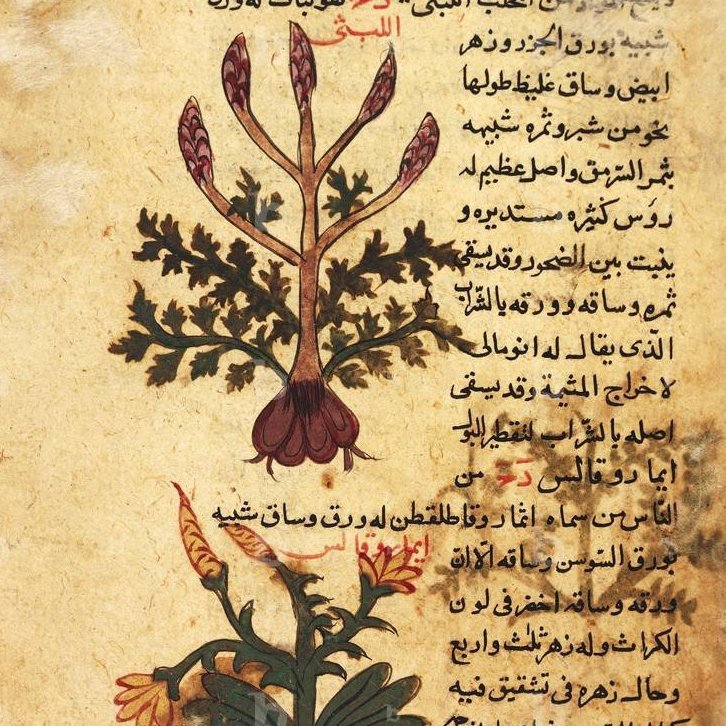 اللبثى
شبيه بورق الجزر وزهر
ابيض وساق غليظ طولها
نحو من شبر وثمره شبيهه
بثمر السرمق واصل عظيم له
رؤس كثيره مستديره و
ينبت بين الصخور وقد يسقى
ثمره وساقه وورقه بالشراب
الذى يقال له انومالى
لاخراج المثيمة وقد يسقى
اصله بالشراب لتقطير البول
ايماروقالس من
الناس من سماه انماروقاطلقطن له ورق وساق شبيه
ايماروقالس
بورق السوسن وساقه الا ان
ورقه وساقه اخضر فى لون
الكراث وله زهر ثلث واربع
وحال زهره فى تشقيق فيه